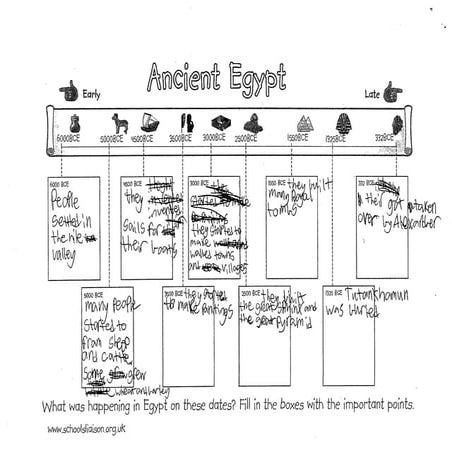 Ancient Egypt
Early
Late
6000BCE
5000BCE
4500BCE
3500BCE
3000BCE
2500BCE
1550BCE
1325BCE
332BCE
6000 BCE
People
settled in
the nile
valley
4500 BCE
they
invented
sails for
their boats
3000 BCE
they started to
make
walled towns
and villages
1550 BCE they built
many royal
tombs
332 BCE
then got taken
over by Alexander
5000 BCE
many people
started to
from sheep
and cattle.
Some grow
wheat and barley
3500 BCE they started
to make paintings
2500 BCE they built
the great sphinx and
the great Pyramid
1325 BCE Tutankhamun
was buried
What was happening in Egypt on these dates? Fill in the boxes with the important points.
www.schoolsliaison.org.uk